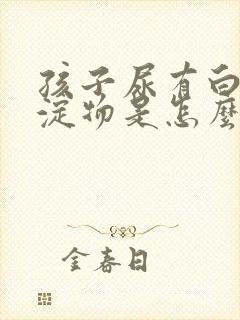 孩子尿有白
淀物是怎麼
金春日